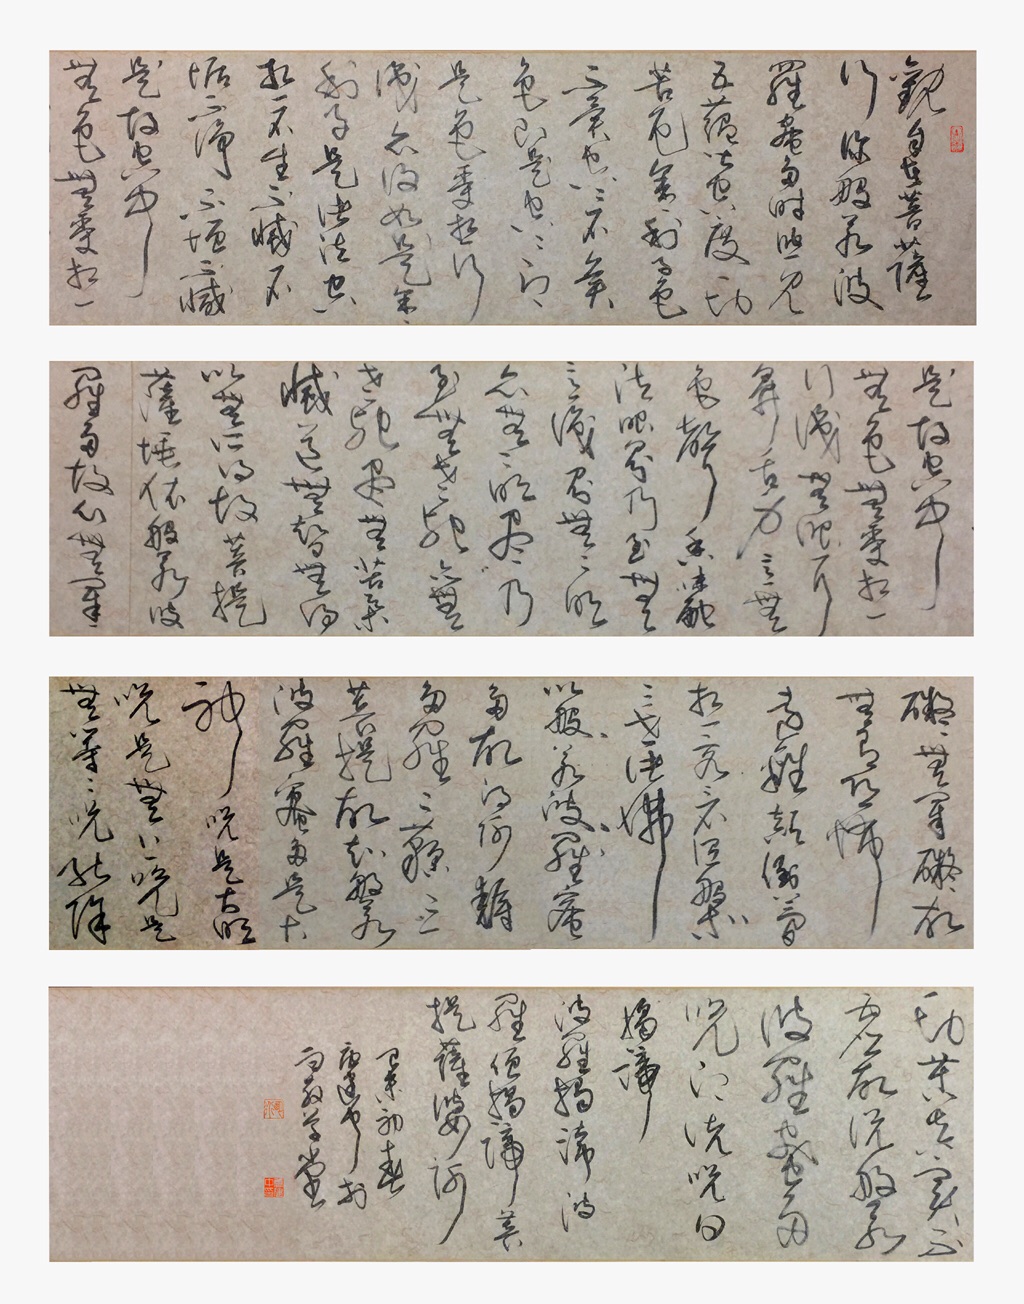 觀自在菩薩
行深般若波
羅蜜多時照見
五蘊皆空度一切
苦厄舍利子色
不異空空不異
色色即是空空即
是色受想行
識亦復如是舍
利子是諸法空
相不生不滅不
垢不淨不增不減
是故空中
無色無受想
是故空中
無色無受想
行識無眼耳
鼻舌身意無
色聲香味觸
法無眼界乃至無
意識界無無明
亦無無明盡乃
至無老死亦無
老死盡無苦集
滅道無智無得
以無所得故菩提
薩埵依般若波
羅多故心無罣
礙無罣礙故
無有恐怖
遠離顛倒夢
想究竟涅槃
三世諸佛
以般若波羅蜜
多故得阿耨
多羅三藐三
菩提故知般若
波羅蜜多是大
神咒是大明
咒是無上咒是
無等等咒能除
一切苦真實不
虛故說般若
波羅蜜多
咒即說咒曰
揭諦
波羅揭諦波
羅僧揭諦菩
提薩婆訶
初春